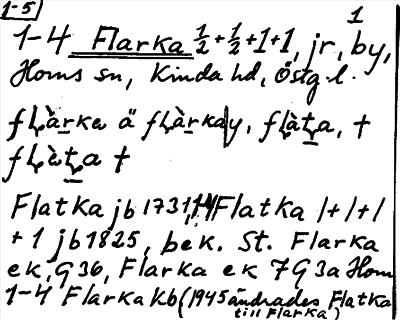 1-5
1
1-4 Flarka 1/2+1/2+1+1, jr, by,
Horns sn, Kinda hd, Östg.l.
flàrka ä flàrkay, flàta, +
flèta +
Flatka jb 1731, 1-4 Flatka 1+1+1
+1 jb 1825, bek. St. Flarka
ek, G 36, Flarka ek 7G3a Horn
1-4 Flarka kb (1945 ändrades Flatka
till Flarka)